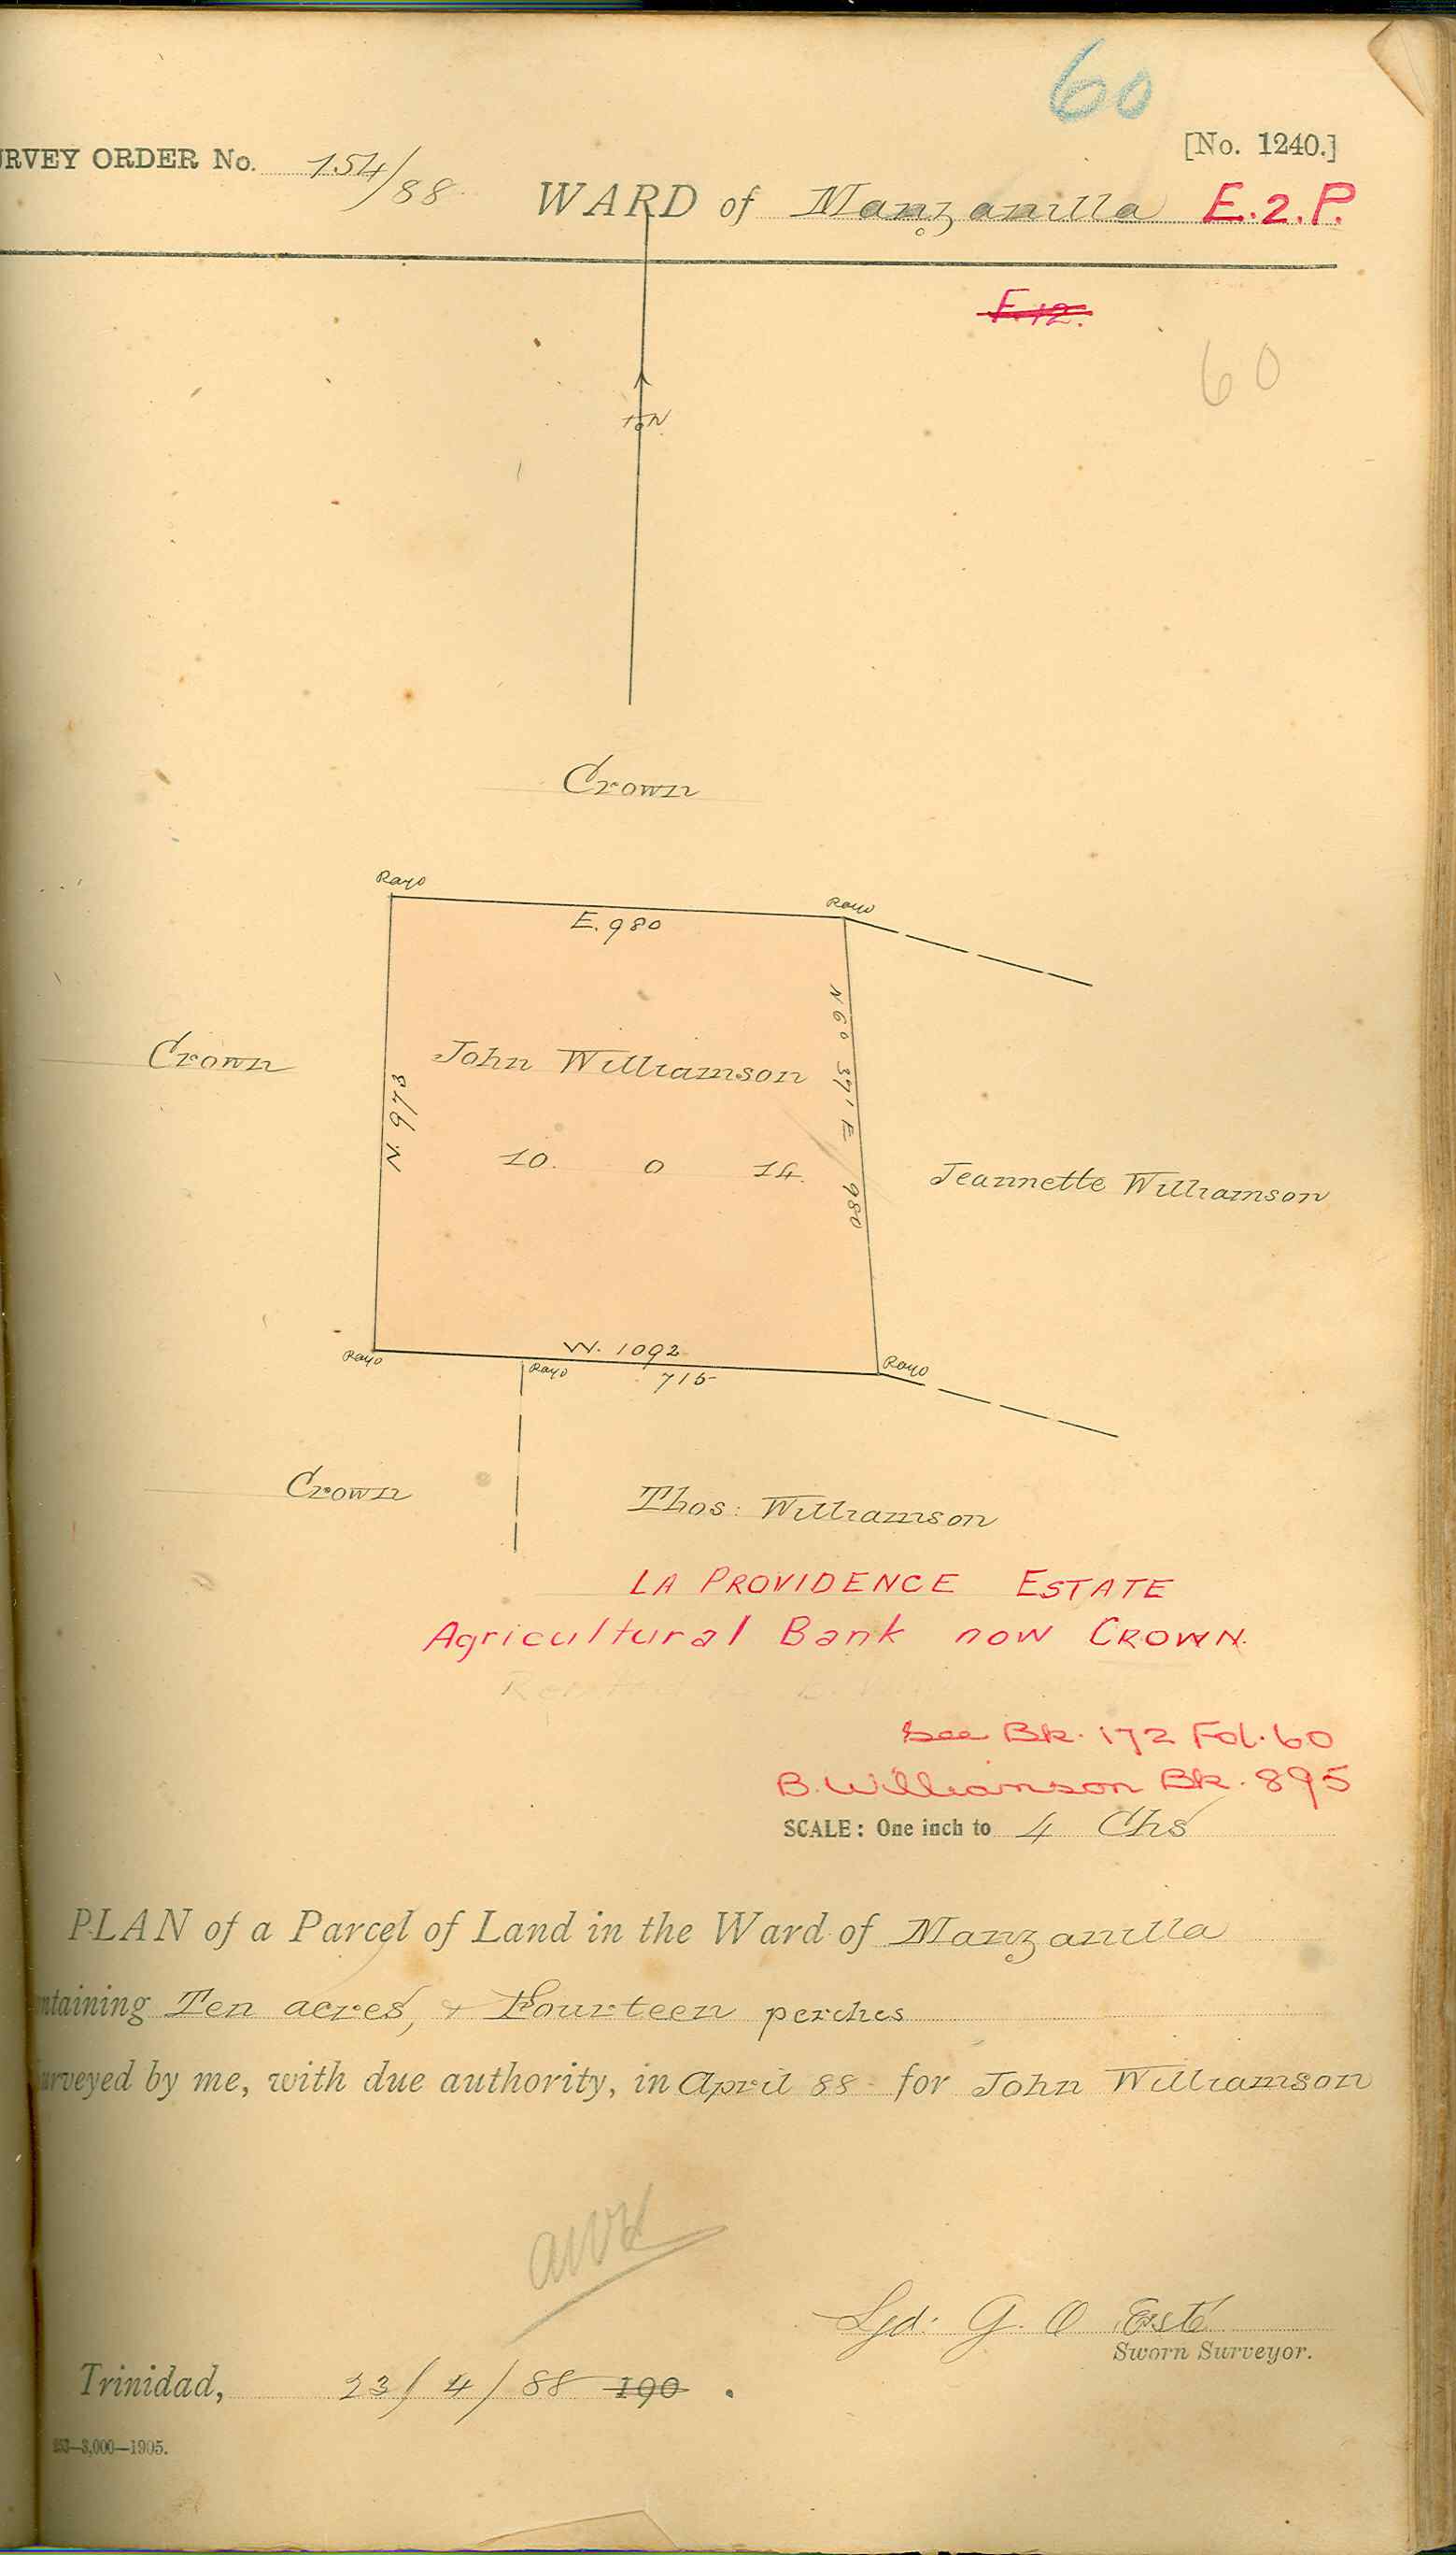 60
[No. 1240.]
RVEY ORDER No. 154/88
WARD of Manzanilla E.2.P.
F.12.
60
N
Crown
Rayo
Rayo
E. 980
Crown
N. 973
John Williamson
N 60 37' E 980
10. 0 14.
Jeannette Williamson
W. 1092
Rayo
Rayo
715
Rayo
Crown
Thos: Williamson
LA PROVIDENCE ESTATE
Agricultural Bank now CROWN.
See Bk. 172 Fol. 60
B. Williamson Bk. 895
SCALE: One inch to 4 Chs
PLAN of a Parcel of Land in the Ward of Manzanilla
ntaining Ten acres, & Fourteen perches
urveyed by me, with due authority, in April 88 for John Williamson
Sgd. G. O Esté
Sworn Surveyor.
Trinidad, 23/4/88 190 .
3,000—1905.